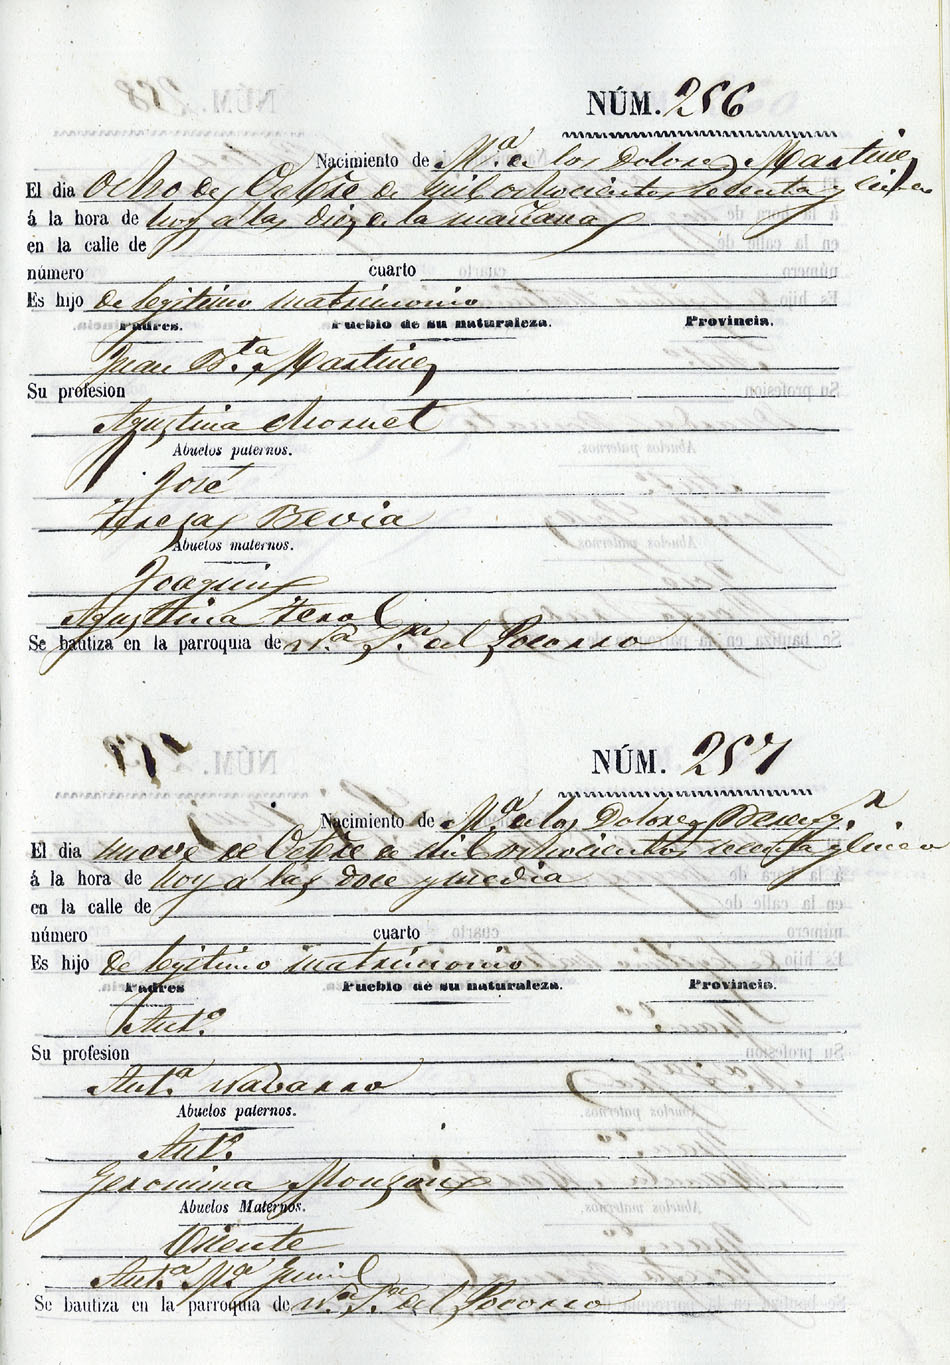 NÚM. 256
Nacimiento de M.ª de los Dolores Martinez
El dia Ocho de Octbre de mil ochocientos setenta y cinco
á la hora de hoy a las diez de la mañana
en la calle de
número cuarto
Es hijo de legitimo matrimonio
Padres. Pueblo de su naturaleza. Provincia.
Juan Bta. Martinez
Su profesion
Agustina
Abuelos paternos.
José
Teresa Bevia
Abuelos maternos.
Joaquin
Agustina Terol
Se bautiza en la parroquia de N.ª S.ra del Socorro
NÚM. 257
Nacimiento de M.ª de los Dolores
El dia nueve de Octbre de mil ochocientos setenta y cinco
á la hora de hoy a las doce y media
en la calle de
número cuarto
Es hijo de legitimo matrimonio
Padres Pueblo de su naturaleza. Provincia.
Ant.º
Su profesion
Ant.ª Navarro
Abuelos paternos.
Ant.º
Geronima Monzon
Abuelos Maternos.
Vicente
Ant.ª M.ª
Se bautiza en la parroquia de N.ª S.ra del Socorro